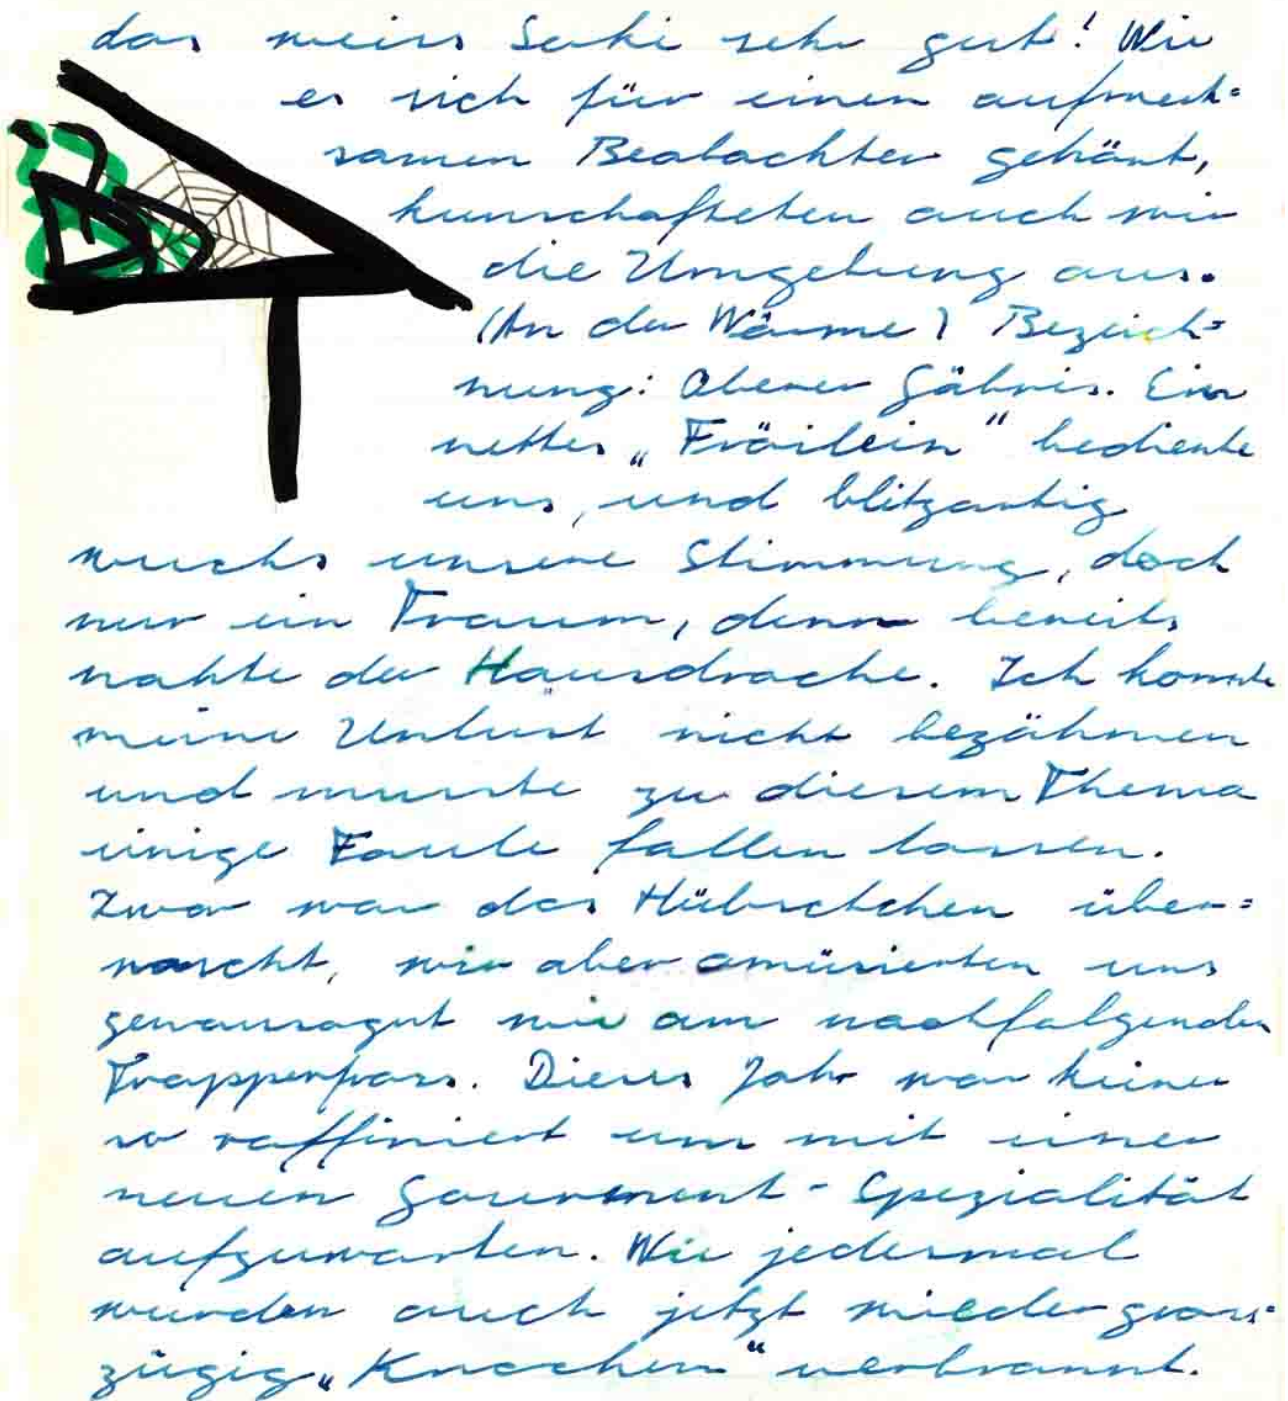 das weiss Saki sehr gut! Wie
es sich für einen aufmerk=
samen Beobachter gehört,
kunschafteten auch wir
die Umgebung aus.
(An der Wärme) Bezeich=
nung: Oberer Gäbris. Ein
nettes „Fräilein" bediente
uns, und blitzartig
wuchs unsere Stimmung, doch
nur ein Traum, denn bereits
nahte der Hausdrache. Ich konnte
meine Unlust nicht bezähmen
und musste zu diesem Thema
einige Faule fallen lassen.
Zwar war das Hübschchen über=
rascht, wir aber amüsierten uns
genausogut wie am nachfolgenden
Trapperfrass. Dieses Jahr war keiner
so raffiniert um mit einer
neuen Gourment-Spezialität
aufzuwarten. Wie jedesmal
wurden auch jetzt wieder gross=
zügig „Knochen" verbrannt.